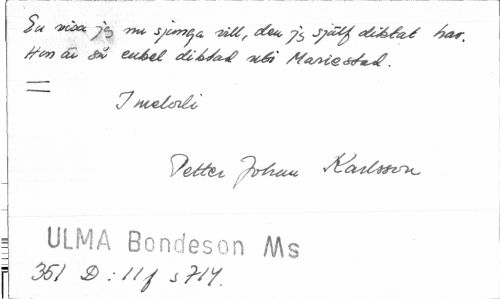 En visa jg nu sjunga vill, den jg själf diktat har.
Hon är så enkel diktad uti Mariestad.
I melodi
Petter Johan Karlsson
ULMA Bondeson Ms
351 D : 11 f s 714.